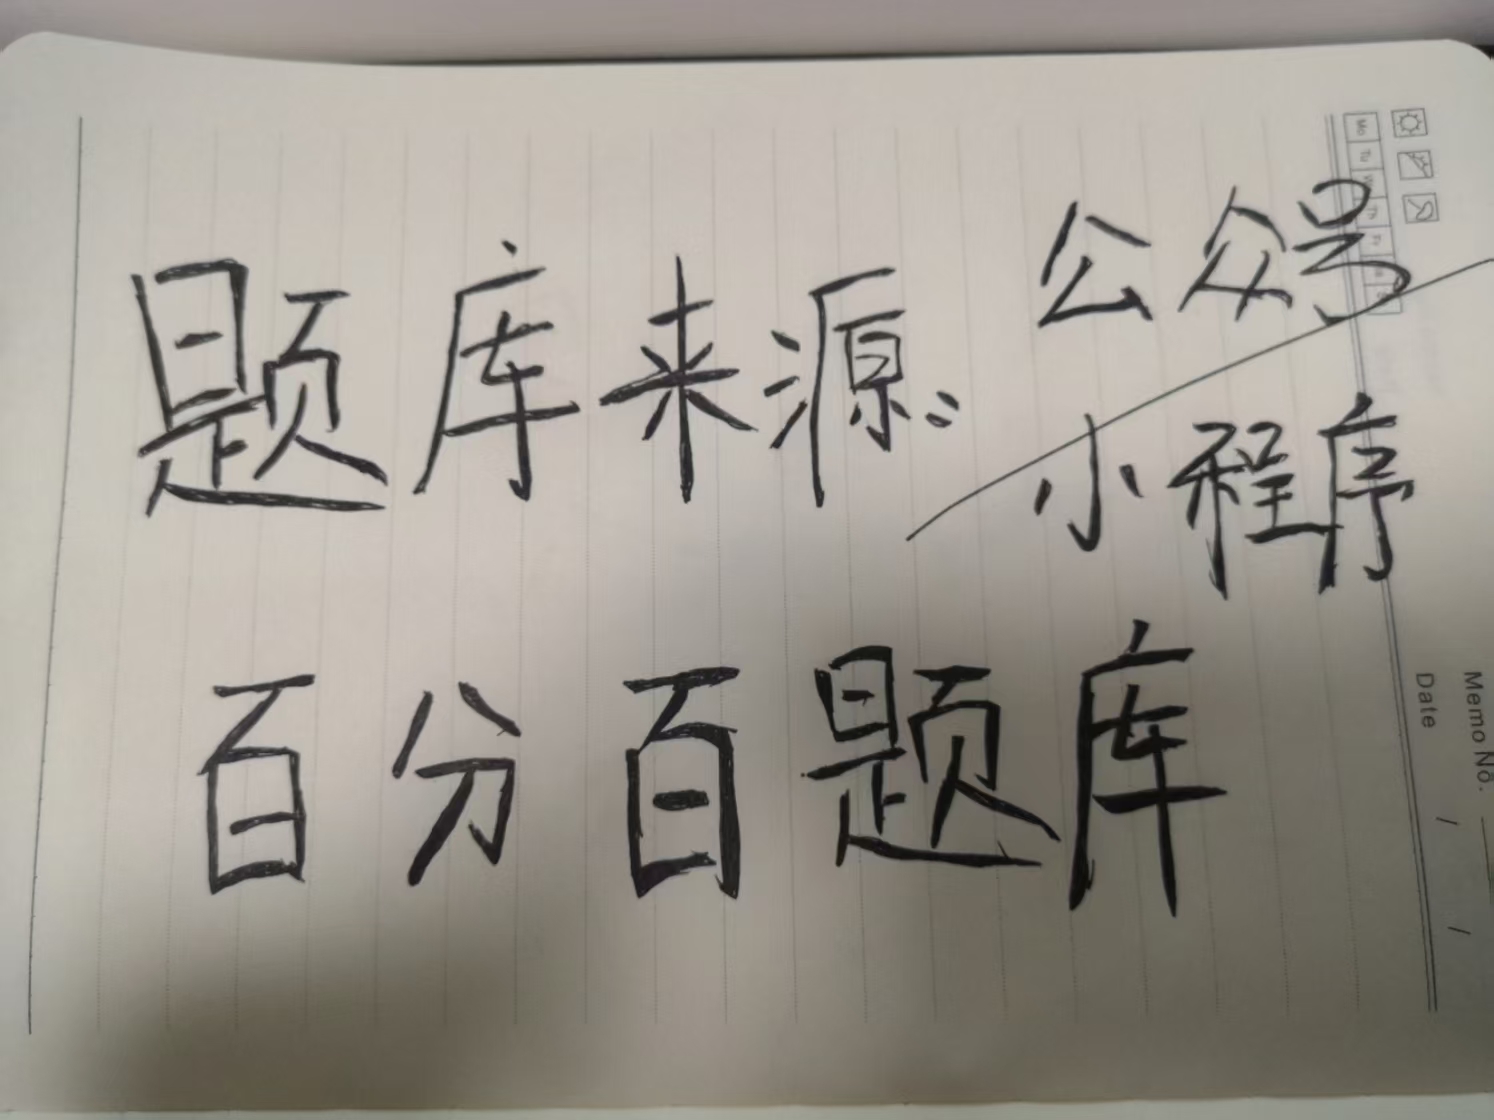 题库来源: 公众号/小程序
百分百题库
Mo
Tu
Memo No.
Date / /